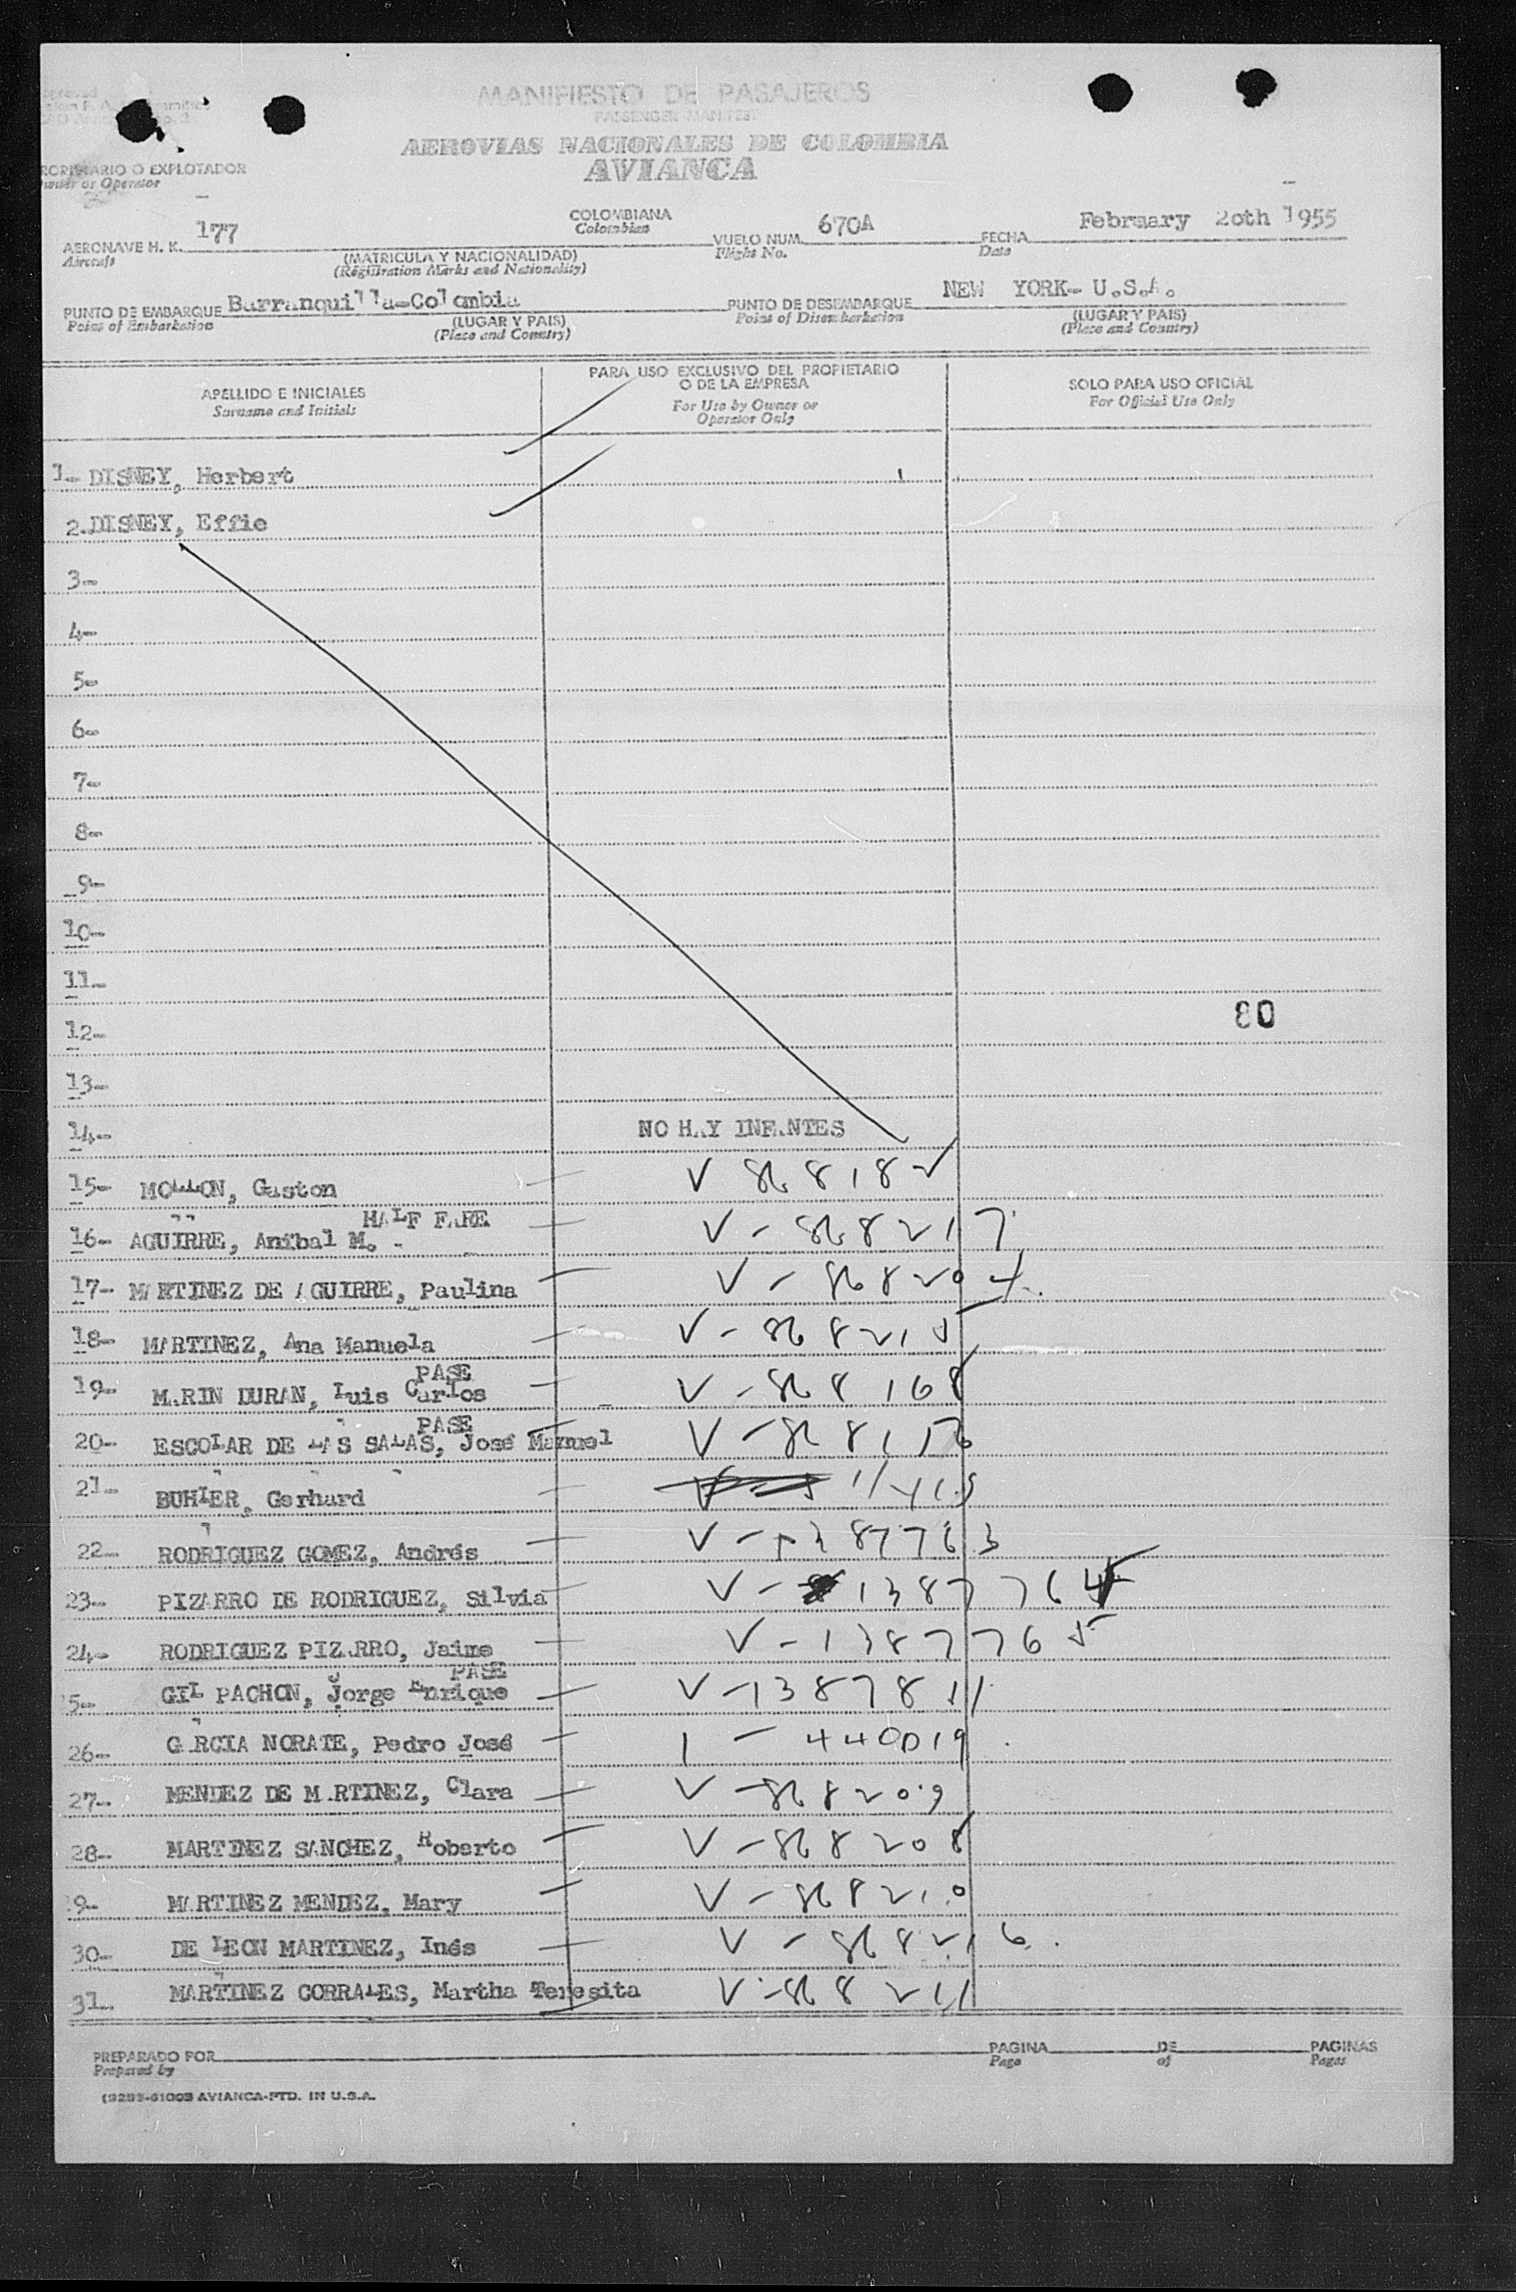 MANIFIESTO DE PASAJEROS
PASSENGER MANIFEST
AEROVIAS NACIONALES DE COLOMBIA
AVIANCA
O EXPLOTADOR
or Operator
AERONAVE H. K. 177 COLOMBIANA VUELO NUM. 670A FECHA February 20th 1955
Aircraft Colombian Flight No. Date
(MATRICULA Y NACIONALIDAD)
(Registration Marks and Nationality)
PUNTO DE EMBARQUE Barranquilla-Colombia PUNTO DE DESEMBARQUE NEW YORK- U.S.A.
Point of Embarkation (LUGAR Y PAIS) Point of Disembarkation (LUGAR Y PAIS)
(Place and Country) (Place and Country)
APELLIDO E INICIALES PARA USO EXCLUSIVO DEL PROPIETARIO SOLO PARA USO OFICIAL
Surname and Initials O DE LA EMPRESA For Official Use Only
For Use by Owner or
Operator Only
1- DISNEY, Herbert
2.DISNEY, Effie
3-
4-
5-
6-
7-
8-
9-
10-
11-
80
12-
13-
14- NO HAY INFANTES
15- MOLLON, Gaston V 868182
HALF FARE
16- AGUIRRE, Anibal M. - V - 868217
17- MARTINEZ DE AGUIRRE, Paulina V - 868204
18- MARTINEZ, Ana Manuela V - 868215
PASE
19- MARIN DURAN, Luis Carlos V - 868168
PASE
20- ESCOLAR DE LAS SALAS, José Manuel V - 868156
21- BUHLER, Gerhard
22- RODRIGUEZ GOMEZ, Andrés V - 1387763
23- PIZARRO DE RODRIGUEZ, Silvia V - 1387764
24- RODRIGUEZ PIZARRO, Jaime V - 1387765
PASE
5- GIL PACHON, Jorge Enrique V - 1387811
26- GARCIA NORATE, Pedro José I - 440019
27- MENDEZ DE MARTINEZ, Clara V - 868209
28- MARTINEZ SANCHEZ, Roberto V - 868208
9- MARTINEZ MENDEZ, Mary V - 868210
30- DE LEON MARTINEZ, Inés V - 868216
31- MARTINEZ CORRALES, Martha Teresita V - 868211
PREPARADO POR PAGINA DE PAGINAS
Prepared by Page of Pages
AVIANCA-PTD. IN U.S.A.